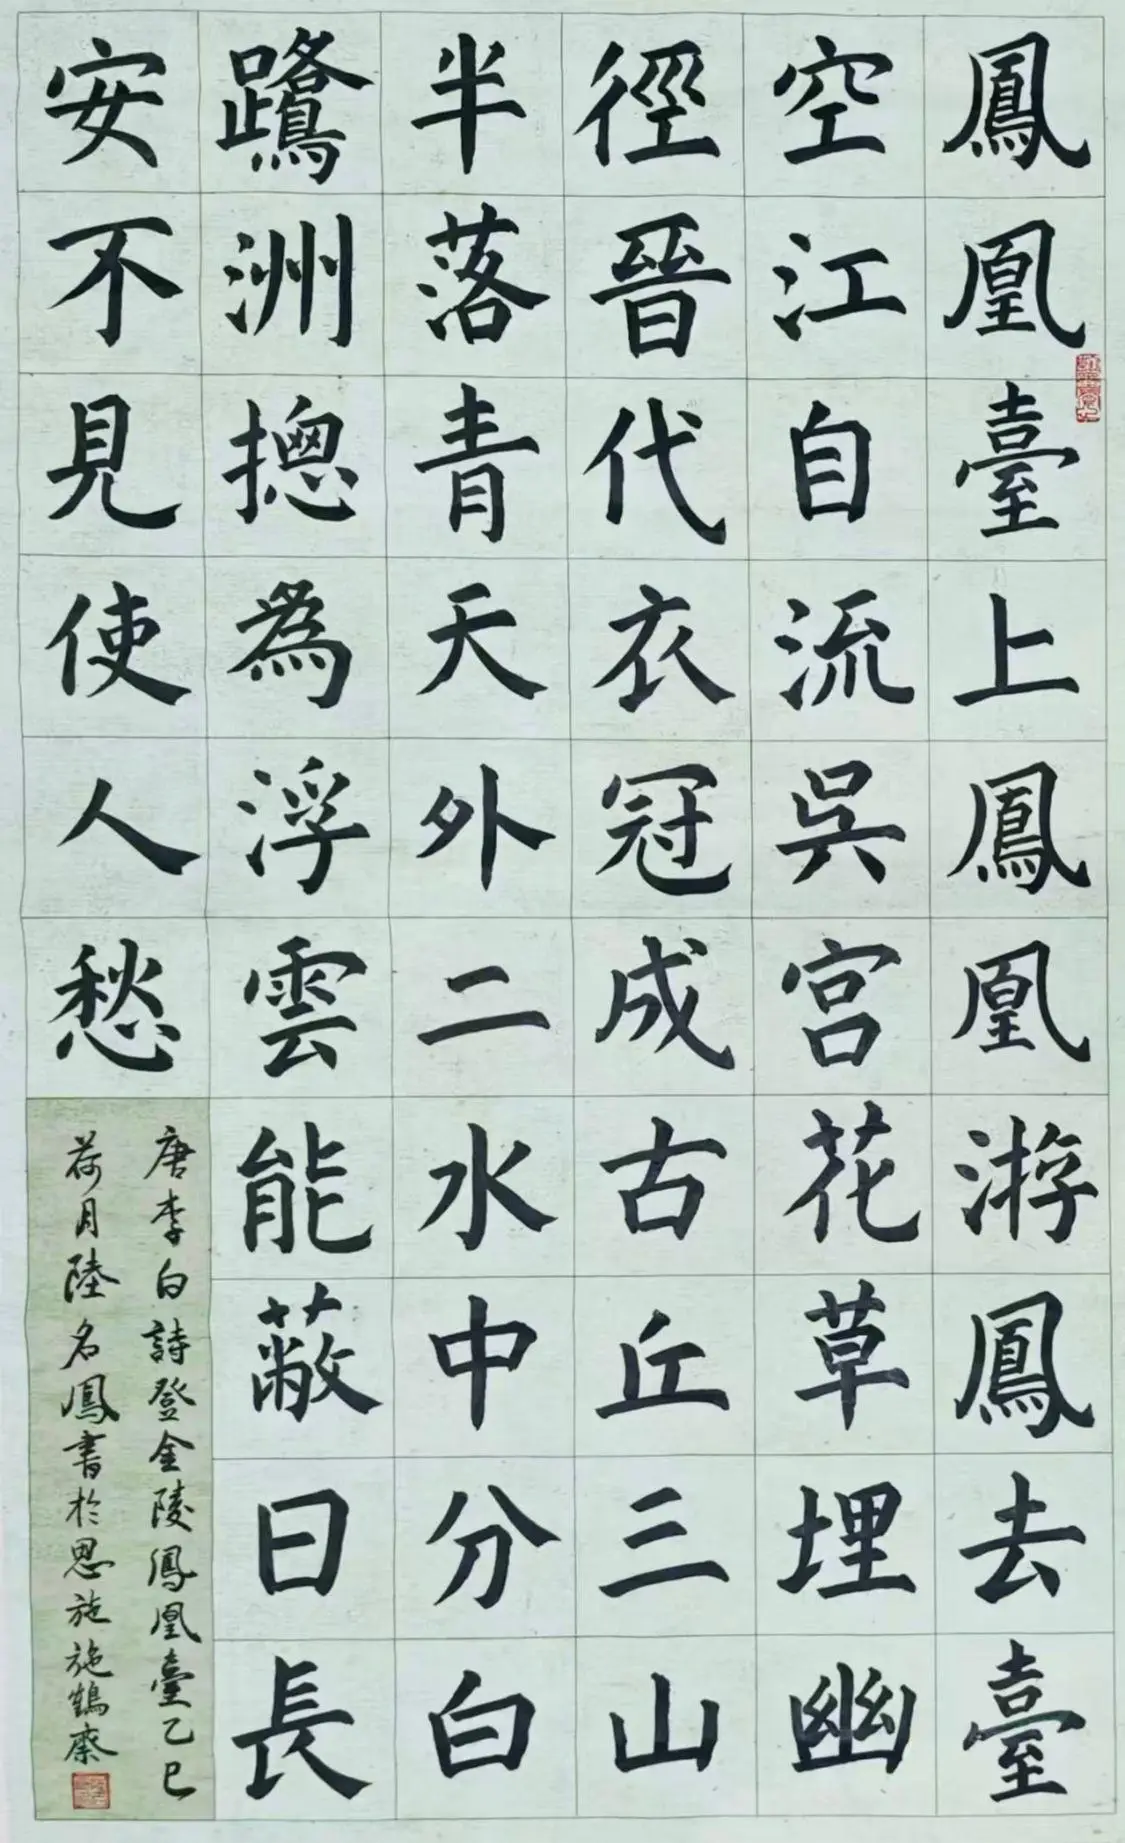 鳳凰臺上鳳凰游鳳去臺
空江自流吳宮花草埋幽
徑晉代衣冠成古丘三山
半落青天外二水中分白
鷺洲摠為浮雲能蔽日長
安不見使人愁
唐李白詩登金陵鳳凰臺乙巳
荷月陸名鳳書於恩施施鶴齋